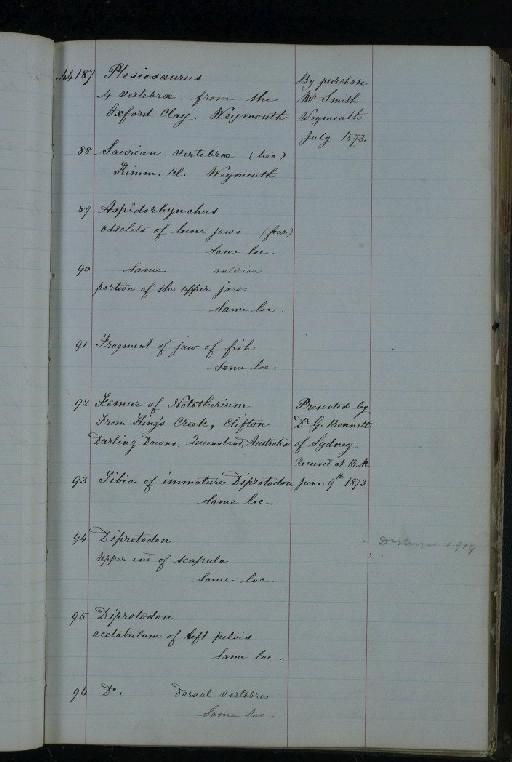 44187 Plesiosaurus
4 vertebræ from the
Oxford Clay. Weymouth
By purchase
Mr Smith
Weymouth
July 1873.
88 Saurian vertebra
Kimm. Cl. Weymouth
89 Aspidorhynchus
of lower jaws
Same loc.
90 Same
portion of the upper jaw
Same loc.
91 Fragment of jaw of fish
Same loc.
92 Femur of Nototherium
From King's Creek, Clifton
Darling Downs, Queensland, Australia
Presented by
Dr G. Bennett
of Sydney
Received at B.M.
June 9th 1873
93 Tibia of immature Diprotodon
Same loc.
94 Diprotodon
upper end of scapula
Same loc.
95 Diprotodon
acetabulum of left pelvis
Same loc.
96 Do. Dorsal vertebra
Same loc.